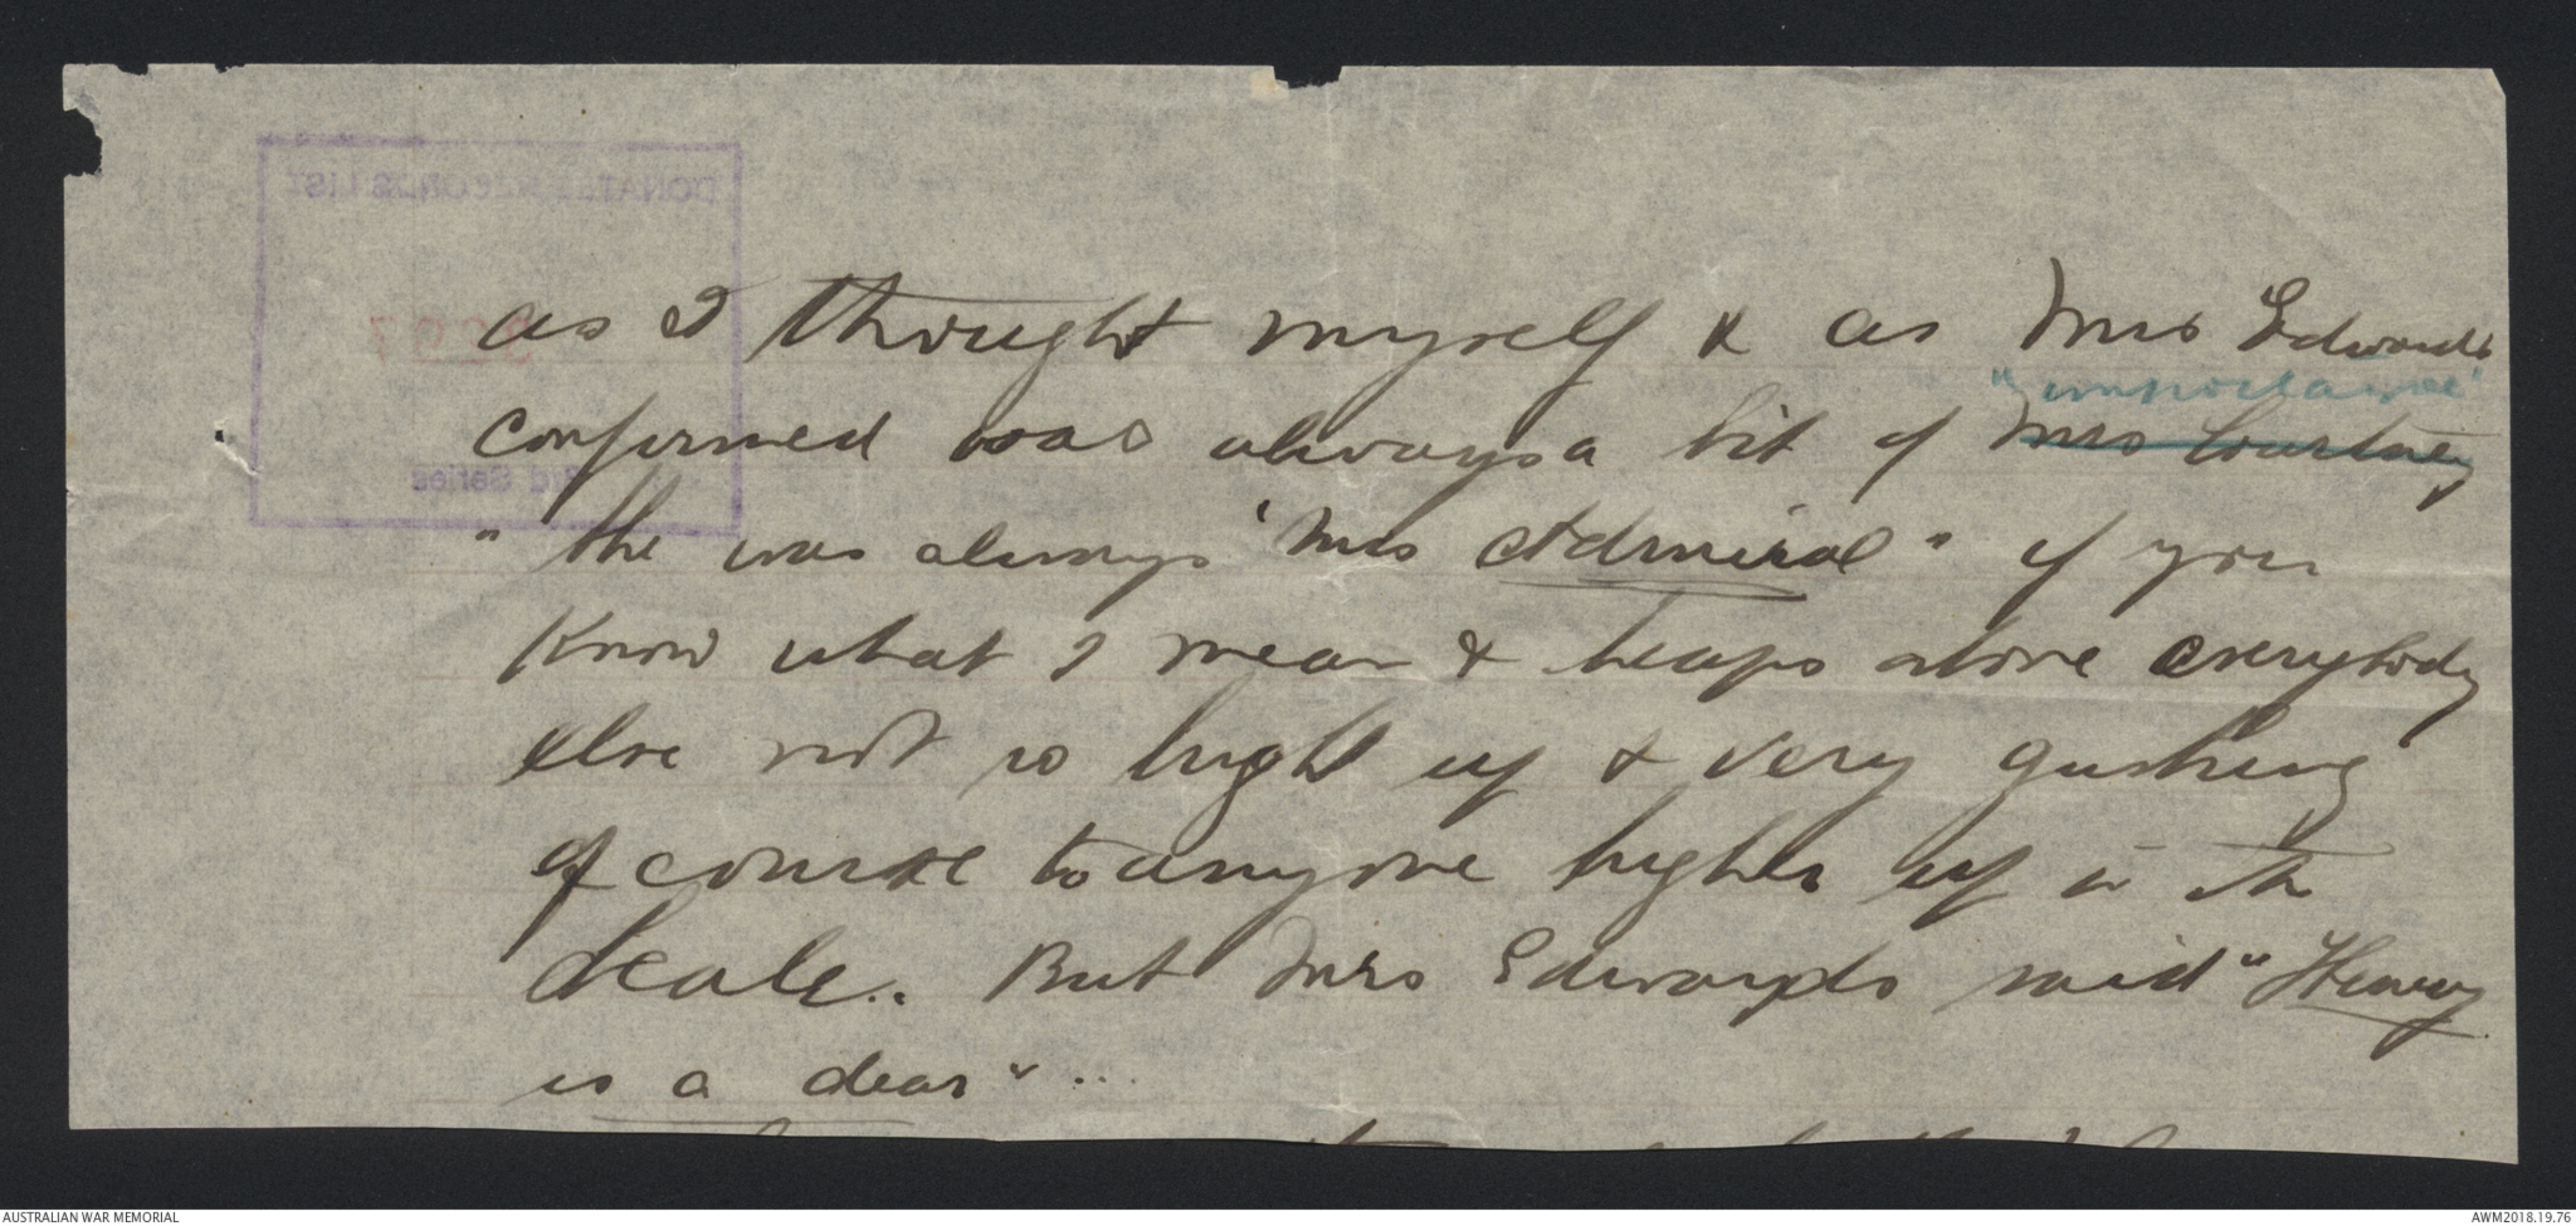 DONATED RECORDS LIST
3297
3rd Series
as I thought myself & as Mrs Edwards
"importance"
confirmed was always a bit of Mrs Courtney
"She was always 'Mrs Admiral" if you
know what I mean & heaps above everybody
else not so high up & very gushing
of course to anyone higher up in the
scale.. But Mrs Edwards said "Henry
is a dear" ...
AUSTRALIAN WAR MEMORIAL
AWM2018.19.76